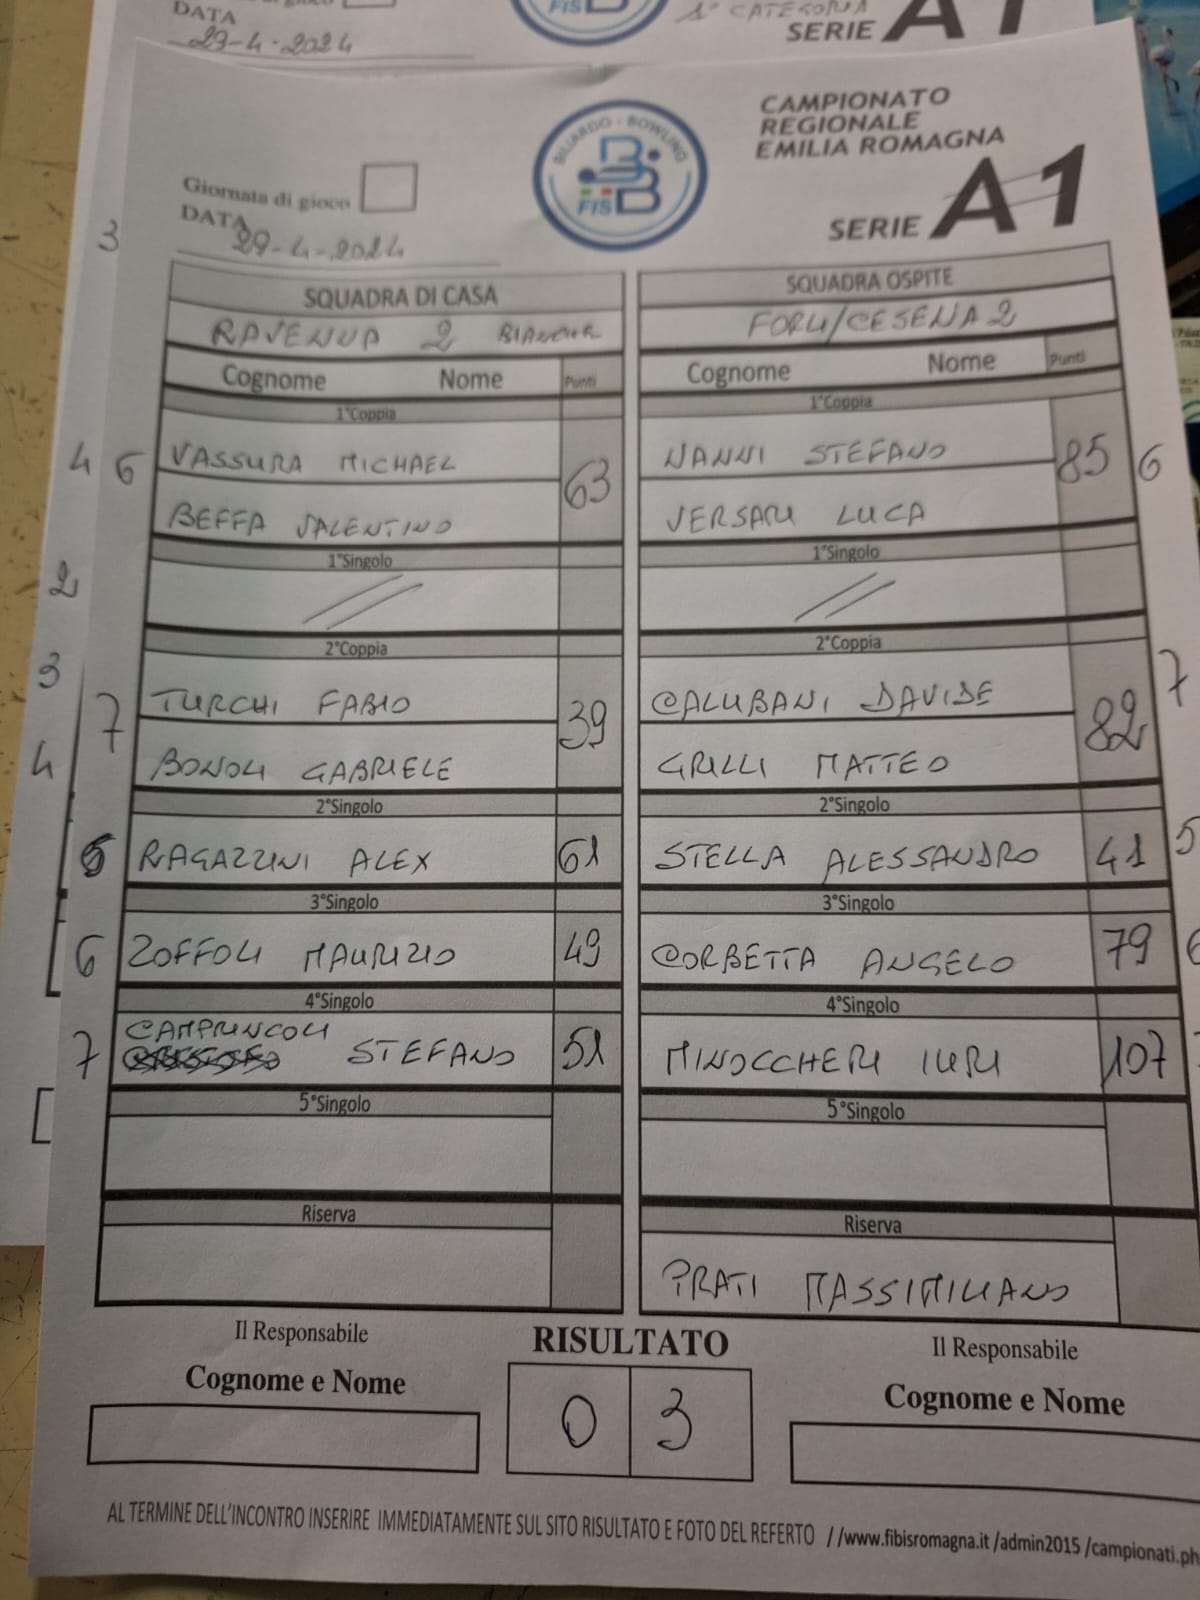 DATA
29-4-2024
FIS
1° CATEGORIA
SERIE A1
CAMPIONATO
REGIONALE
EMILIA ROMAGNA
SERIE A1
BILIARDO - BOWLING
FIS
Giornata di gioco
DATA
29-4-2024
3
SQUADRA DI CASA
SQUADRA OSPITE
RAVENNA 2
FORLI/CESENA 2
Cognome Nome Punti
Cognome Nome Punti
1°Coppia
1°Coppia
4 6 VASSURA MICHAEL 63
NANNI STEFANO 85 6
BEFFA VALENTINO
VERSARI LUCA
1°Singolo
1°Singolo
2
//
//
2°Coppia
2°Coppia
3
7 TURCHI FABIO 39
CALUBANI DAVIDE 82 7
4
BONOLI GABRIELE
GRILLI MATTEO
2°Singolo
2°Singolo
5 RAGAZZINI ALEX 61
STELLA ALESSANDRO 41 5
3°Singolo
3°Singolo
6 ZOFFOLI MAURIZIO 49
CORBETTA ANGELO 79 6
4°Singolo
4°Singolo
CAMPRINCOLI
7 STEFANO 51
MINOCCHERI IURI 107
5°Singolo
5°Singolo
Riserva
Riserva
PRATI MASSIMILIANO
Il Responsabile
RISULTATO
Il Responsabile
Cognome e Nome
Cognome e Nome
0 3
AL TERMINE DELL'INCONTRO INSERIRE IMMEDIATAMENTE SUL SITO RISULTATO E FOTO DEL REFERTO //www.fibisromagna.it /admin2015 /campionati.ph